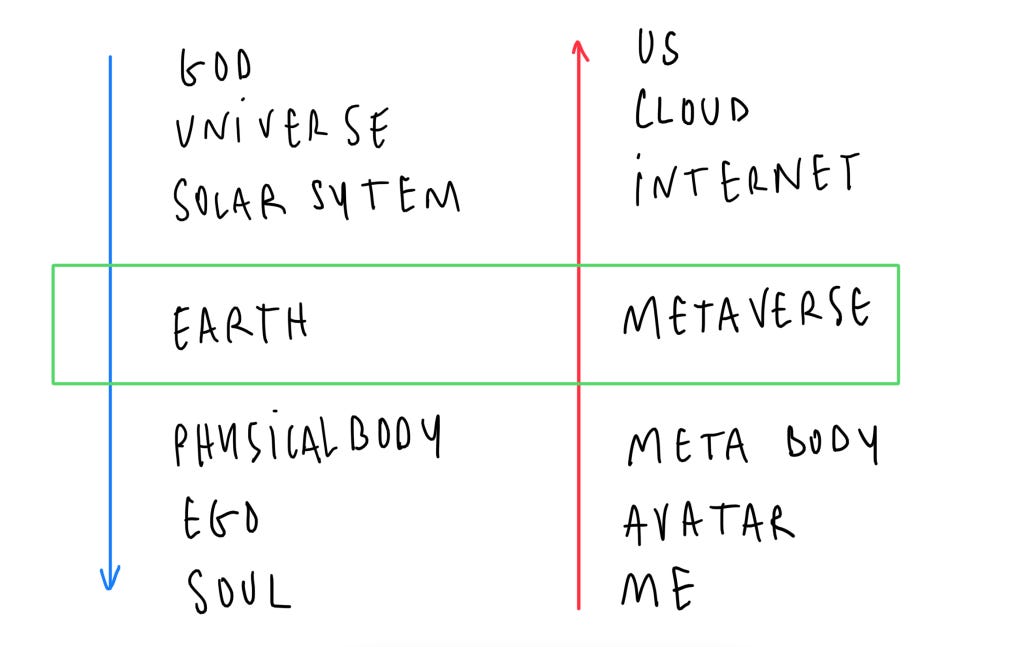 GOD
UNIVERSE
SOLAR SYTEM
EARTH
PHYSICAL BODY
EGO
SOUL
US
CLOUD
INTERNET
METAVERSE
META BODY
AVATAR
ME